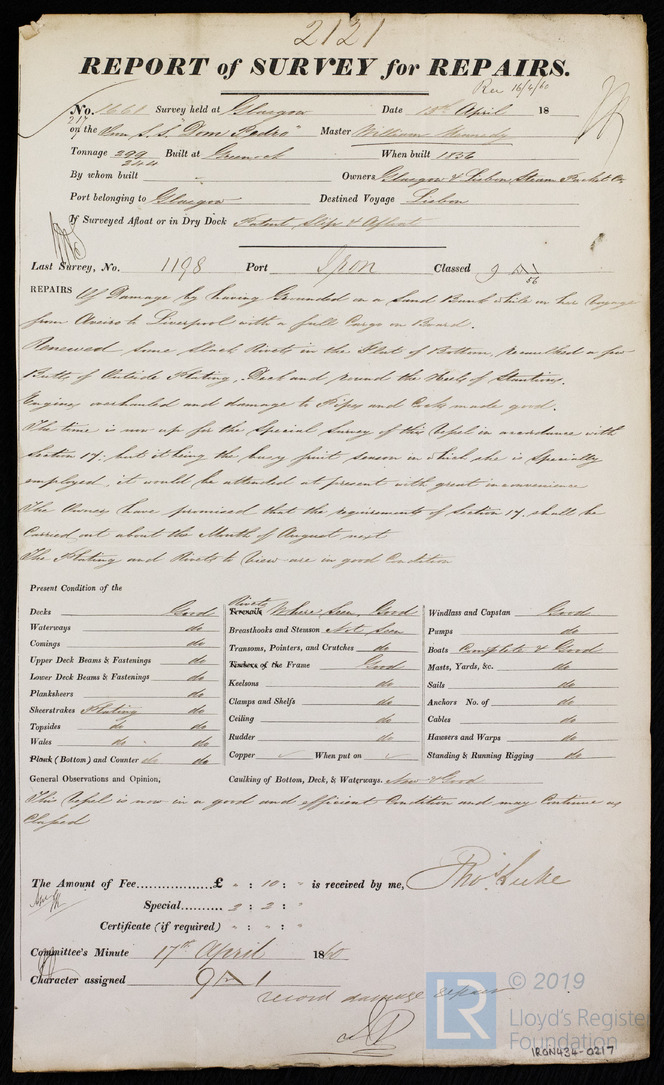 2121
REPORT of SURVEY for REPAIRS.
Rec 16/4/60
No. 1661 Survey held at Glasgow Date 13th April 18
217
on the Iron S.S. "Dom Pedro" Master William Kennedy
Tonnage 299 Built at Greenock When built 1856
244
By whom built Owners Glasgow & Lisbon Steam Packet Co
Port belonging to Glasgow Destined Voyage Lisbon
If Surveyed Afloat or in Dry Dock Patent Slip & Afloat
Last Survey, No. 1198 Port Iron Classed 9 A1
56
REPAIRS Of Damage by having Grounded in a Sand Bank while on her Voyage
from Aveiro to Liverpool with a full Cargo on Board.
Renewed some Slack Rivets in the Flat of Bottom, recaulked a few
Butts of Outside Plating, Deck and round the Heels of Stantions.
Engines overhauled and damage to Pipes and Cocks made good.
The time is now up for the Special Survey of this Vessel in accordance with
Section 17; but it being the busy fruit season in which she is Specially
employed, it would be attended at present with great inconvenience
The Owners have promised that the requirements of Section 17 shall be
Carried out about the Month of August next
The Plating and Rivets to View are in good Condition
Present Condition of the
Decks Good
Waterways do
Comings do
Upper Deck Beams & Fastenings do
Lower Deck Beams & Fastenings do
Planksheers do
Sheerstrakes Plating do
Topsides do do
Wales do do
Plank (Bottom) and Counter do do
Rivets
Treenails Where Seen, Good
Breasthooks and Stemson Not Seen
Transoms, Pointers, and Crutches do
Timbers of the Frame Good
Keelsons do
Clamps and Shelfs do
Ceiling do
Rudder do
Copper When put on
Windlass and Capstan Good
Pumps do
Boats Complete & Good
Masts, Yards, &c. do
Sails do
Anchors No. of do
Cables do
Hawsers and Warps do
Standing & Running Rigging do
General Observations and Opinion, Caulking of Bottom, Deck, & Waterways. New & Good
This Vessel is now in a good and efficient Condition and may Continue as
Classed
The Amount of Fee..................£ " : 10 : " is received by me, Thos. Luke
Special.......... 2 : 2 : "
Certificate (if required) " : " : "
Committee's Minute 17th April 1860
Character assigned 9 A 1
record damage repair
© 2019
LR Lloyd's Register
Foundation
IRON434-0217